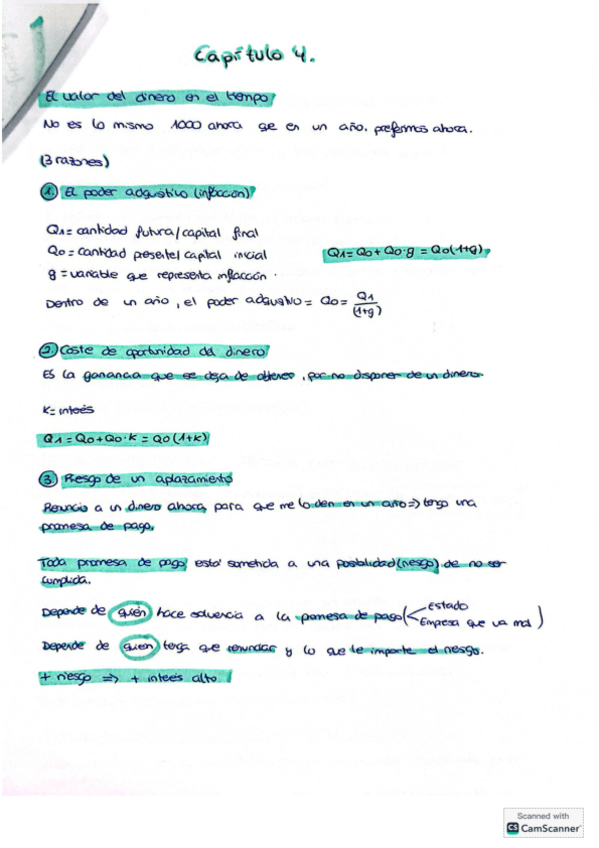 Capítulo 4.
El valor del dinero en el tiempo
No es lo mismo 1000 ahora que en un año. preferimos ahora.
(3 razones)
1. El poder adquisitivo (inflación)
Q1= cantidad futura/capital final
Q0= cantidad presente/capital inicial
Q1= Q0+Q0·g = Q0(1+g)
g = variable que representa inflacción.
Dentro de un año, el poder adquisitivo = Q0 = Q1/(1+g)
2. Coste de oportunidad del dinero
Es la ganancia que se deja de obtener, por no disponer de un dinero
K= interés
Q1 = Q0+Q0·K = Q0(1+K)
3. Riesgo de un aplazamiento
Renuncio a un dinero ahora, para que me lo den en un año => tengo una
promesa de pago.
Toda promesa de pago está sometida a una posibilidad (riesgo) de no ser
cumplida.
Depende de quién hace solvencia a la promesa de pago ( Estado
Empresa que va mal )
Depende de quien tenga que renunciar y lo que le importe el riesgo.
+ riesgo => + interés alto.
Scanned with
CS CamScanner